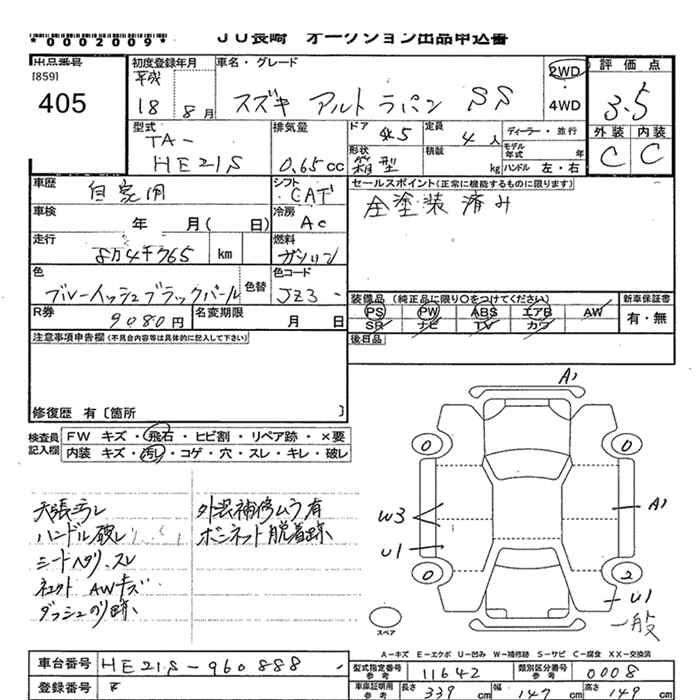 *0002009*
JU長崎 オークション出品申込書
出品番号
[859]
405
初度登録年月
平成
18 8月
車名・グレード
スズキ アルトラパン SS
2WD
・
4WD
評価点
3.5
外装 内装
C C
型式
TA-
HE21S
排気量
0.65cc
ドア 5
定員 4人
形状 型
積載 kg
ディーラー・並行
モデル年式 年
ハンドル 左・右
車歴 自家用
シフト CAT
セールスポイント(正常に機能するものに限ります)
全塗装済み
車検 年 月( 日)
冷房 AC
走行 8万4千765 km
燃料 ガソリン
色 ブルーイッシュブラックパール
色替
色コード JZ3
装備品(純正品に限り〇をつけてください)
PS PW ABS エアB AW
SR ナビ TV カワ
新車保証書
有・無
R券 9080円
名変期限 月 日
後日品
注意事項申告欄(不具合内容等は具体的に記入して下さい)
修復歴 有〔箇所 〕
検査員
記入欄
FW キズ・飛石・ヒビ割・リペア跡・×要
内装 キズ・汚れ・コゲ・穴・スレ・キレ・破レ
天張ヨゴレ
ハンドル破レ
シートヘタリ、スレ
AWキズ
ダッシュのり跡
外装補修ムラ有
ボンネット脱着跡
A1
0 0
W3
A1
U1
0 2
U1
一般
スペア
A-キズ E-エクボ U-凹み W-補修跡 S-サビ C-腐食 XX-交換済
車台番号 HE21S-960888
型式指定番号 参考 11642
類別区分番号 参考 0008
登録番号
車庫証明用 参考 長さ 339cm 幅 147cm 高さ 149cm